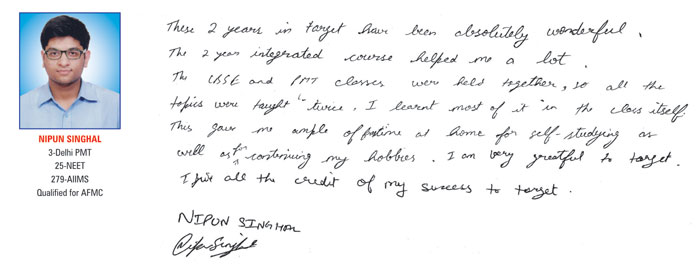 NIPUN SINGHAL
3-Delhi PMT
25-NEET
279-AIIMS
Qualified for AFMC
These 2 years in target have been absolutely wonderful.
The 2 year integrated course helped me a lot.
The CBSE and PMT classes were held together, so all the
topics were taught twice. I learnt most of it in the class itself.
This gave me ample of time at home for self-studying as
well as for continuing my hobbies. I am very greatful to target.
I give all the credit of my success to target.
NIPUN SINGHAL
Nipun Singhal